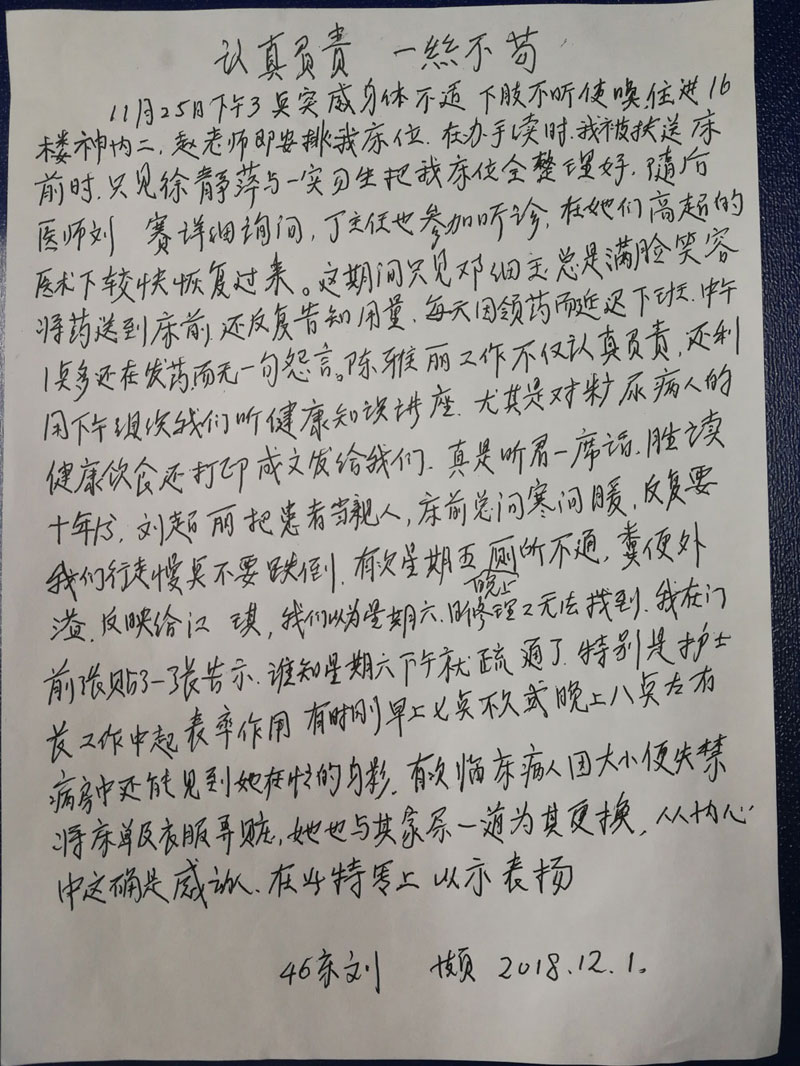 认真负责 一丝不苟
11月25日下午3点突感身体不适下肢不听使唤.住进16
楼神内二，赵老师即安排我床位.在办手续时.我被扶送床
前时.只见徐静萍与一实习生把我床位全整理好.随后
医师刘 赛详细询问，丁主任也参加听诊，在她们高超的
医术下较快恢复过来。这期间只见邓细主总是满脸笑容
将药送到床前.还反复告知用量.每天因领药而延迟下班.中午
1点多还在发药而无一句怨言。陈雅丽工作不仅认真负责，还利
用下午组织我们听健康知识讲座.尤其是对糖尿病人的
健康饮食还打印成文发给我们.真是听君一席话.胜读
十年书，刘超丽把患者当亲人，床前总问寒问暖，反复要
我们行走慢点不要跌倒.有次星期五晚上厕所不通，粪便外
溢.反映给江 琪，我们以为星期六.日修理工无法找到.我在门
前张贴了一张告示.谁知星期六下午就疏通了.特别是护士
长工作中起表率作用 有时刚早上七点不久或晚上八点左右
病房中还能见到她在忙的身影.有次临床病人因大小便失禁
将床单及衣服弄脏，她也与其家属一道为其更换，从内心
中这确是感动人.在此特写上 以示表扬
46床刘 2018.12.1.